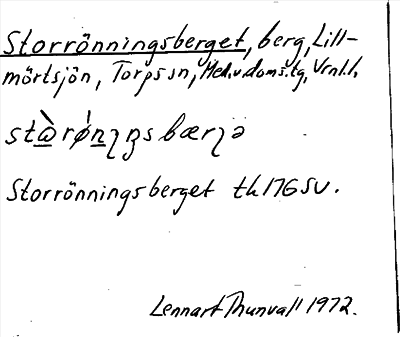 Storrönningsberget, berg, Lill-
mörtsjön, Torps sn, Med.v.doms.tg, Vrnl.l.
Storrönningsberget th 17G SV.
Lennart Thunvall 1972.